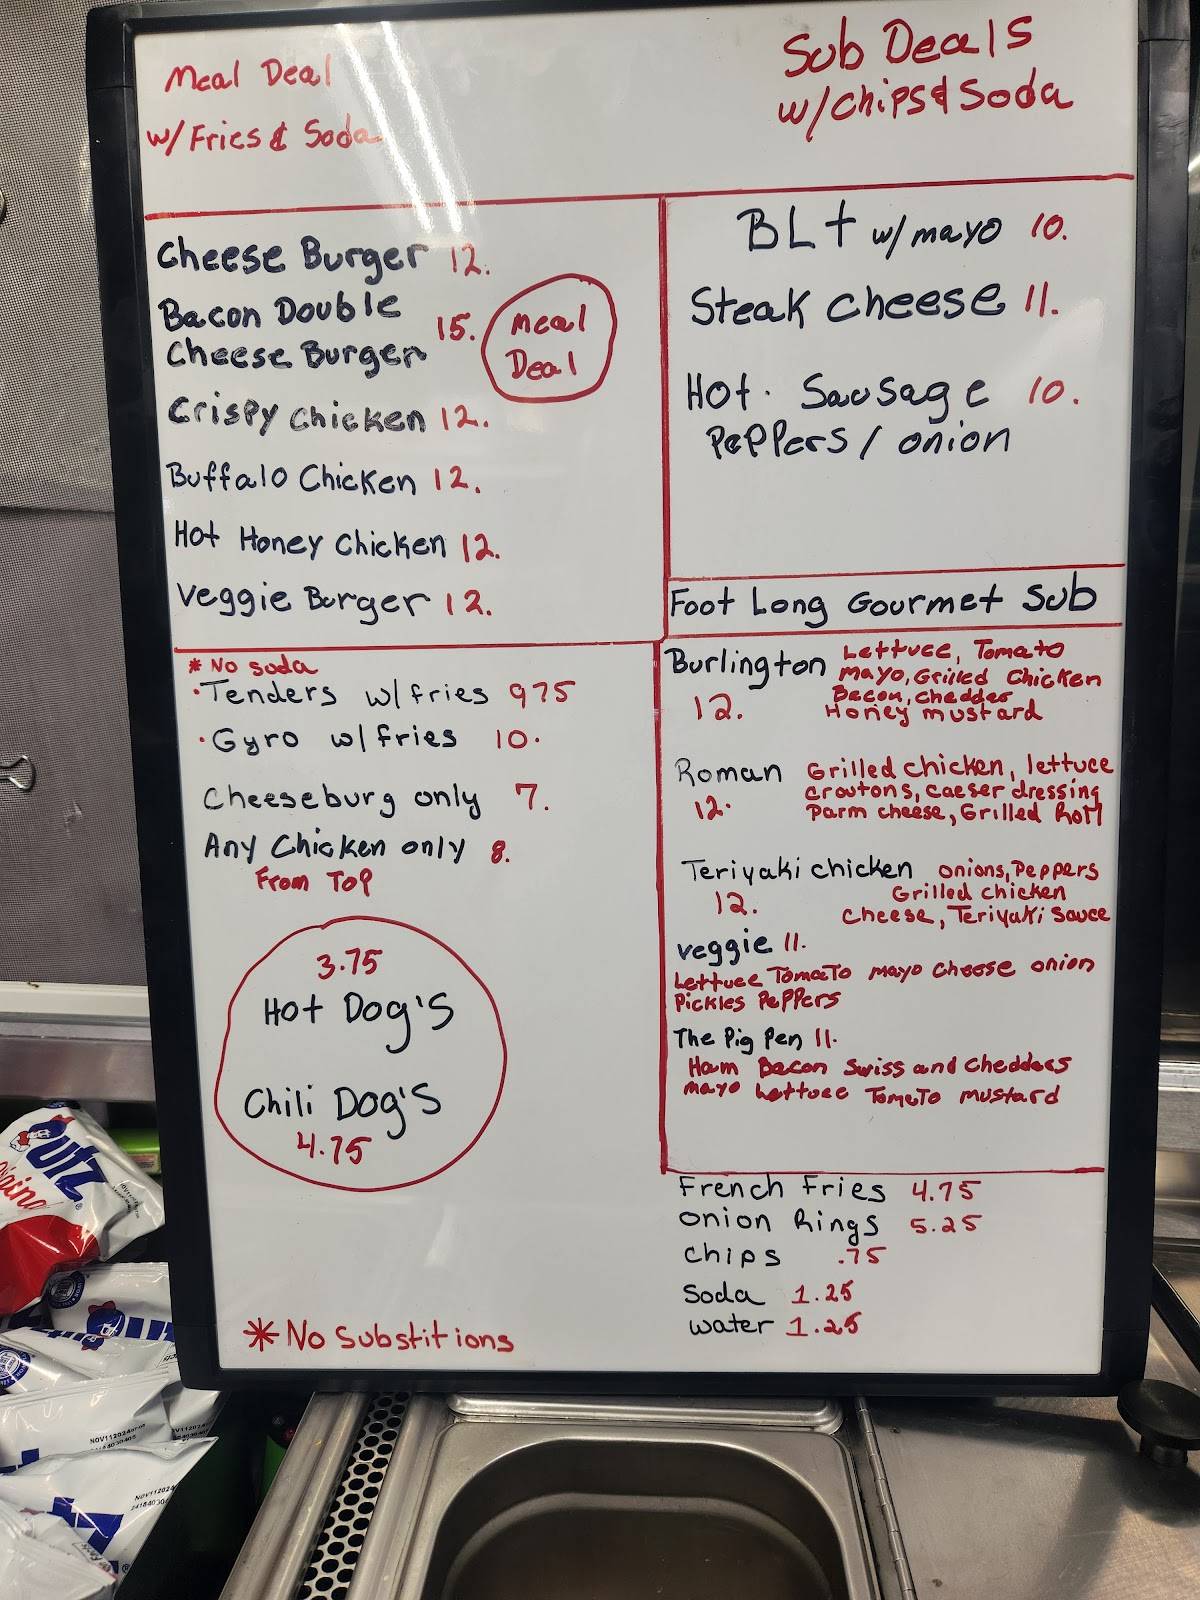 Meal Deal
w/Fries & Soda
Sub Deals
w/chips & Soda
Cheese Burger 12.
Bacon Double
Cheese Burger 15.
Meal
Deal
Crispy Chicken 12.
Buffalo Chicken 12.
Hot Honey Chicken 12.
Veggie Burger 12.
BLt w/mayo 10.
Steak cheese 11.
Hot. Sausage 10.
PePPers / onion
* No soda
·Tenders w/fries 975
·Gyro w/fries 10.
Cheeseburg only 7.
Any Chicken only 8.
From Top
3.75
Hot Dog's
Chili Dog's
4.75
* No Substitions
Foot Long Gourmet Sub
Burlington Lettuce, Tomato
Mayo, Grilled Chicken
Bacon, Chedder
12. Honey mustard
Roman Grilled chicken, lettuce
croutons, caeser dressing
12. Parm cheese, Grilled Roll
Teriyaki chicken onions, Peppers
Grilled chicken
12. cheese, Teriyaki Sauce
veggie 11.
Lettuce Tomato mayo cheese onion
Pickles Peppers
The Pig Pen 11.
Ham Bacon Swiss and Chedders
mayo Lettuce Tomato mustard
French Fries 4.75
onion Rings 5.25
chips .75
Soda 1.25
water 1.25
utz
NOV112024